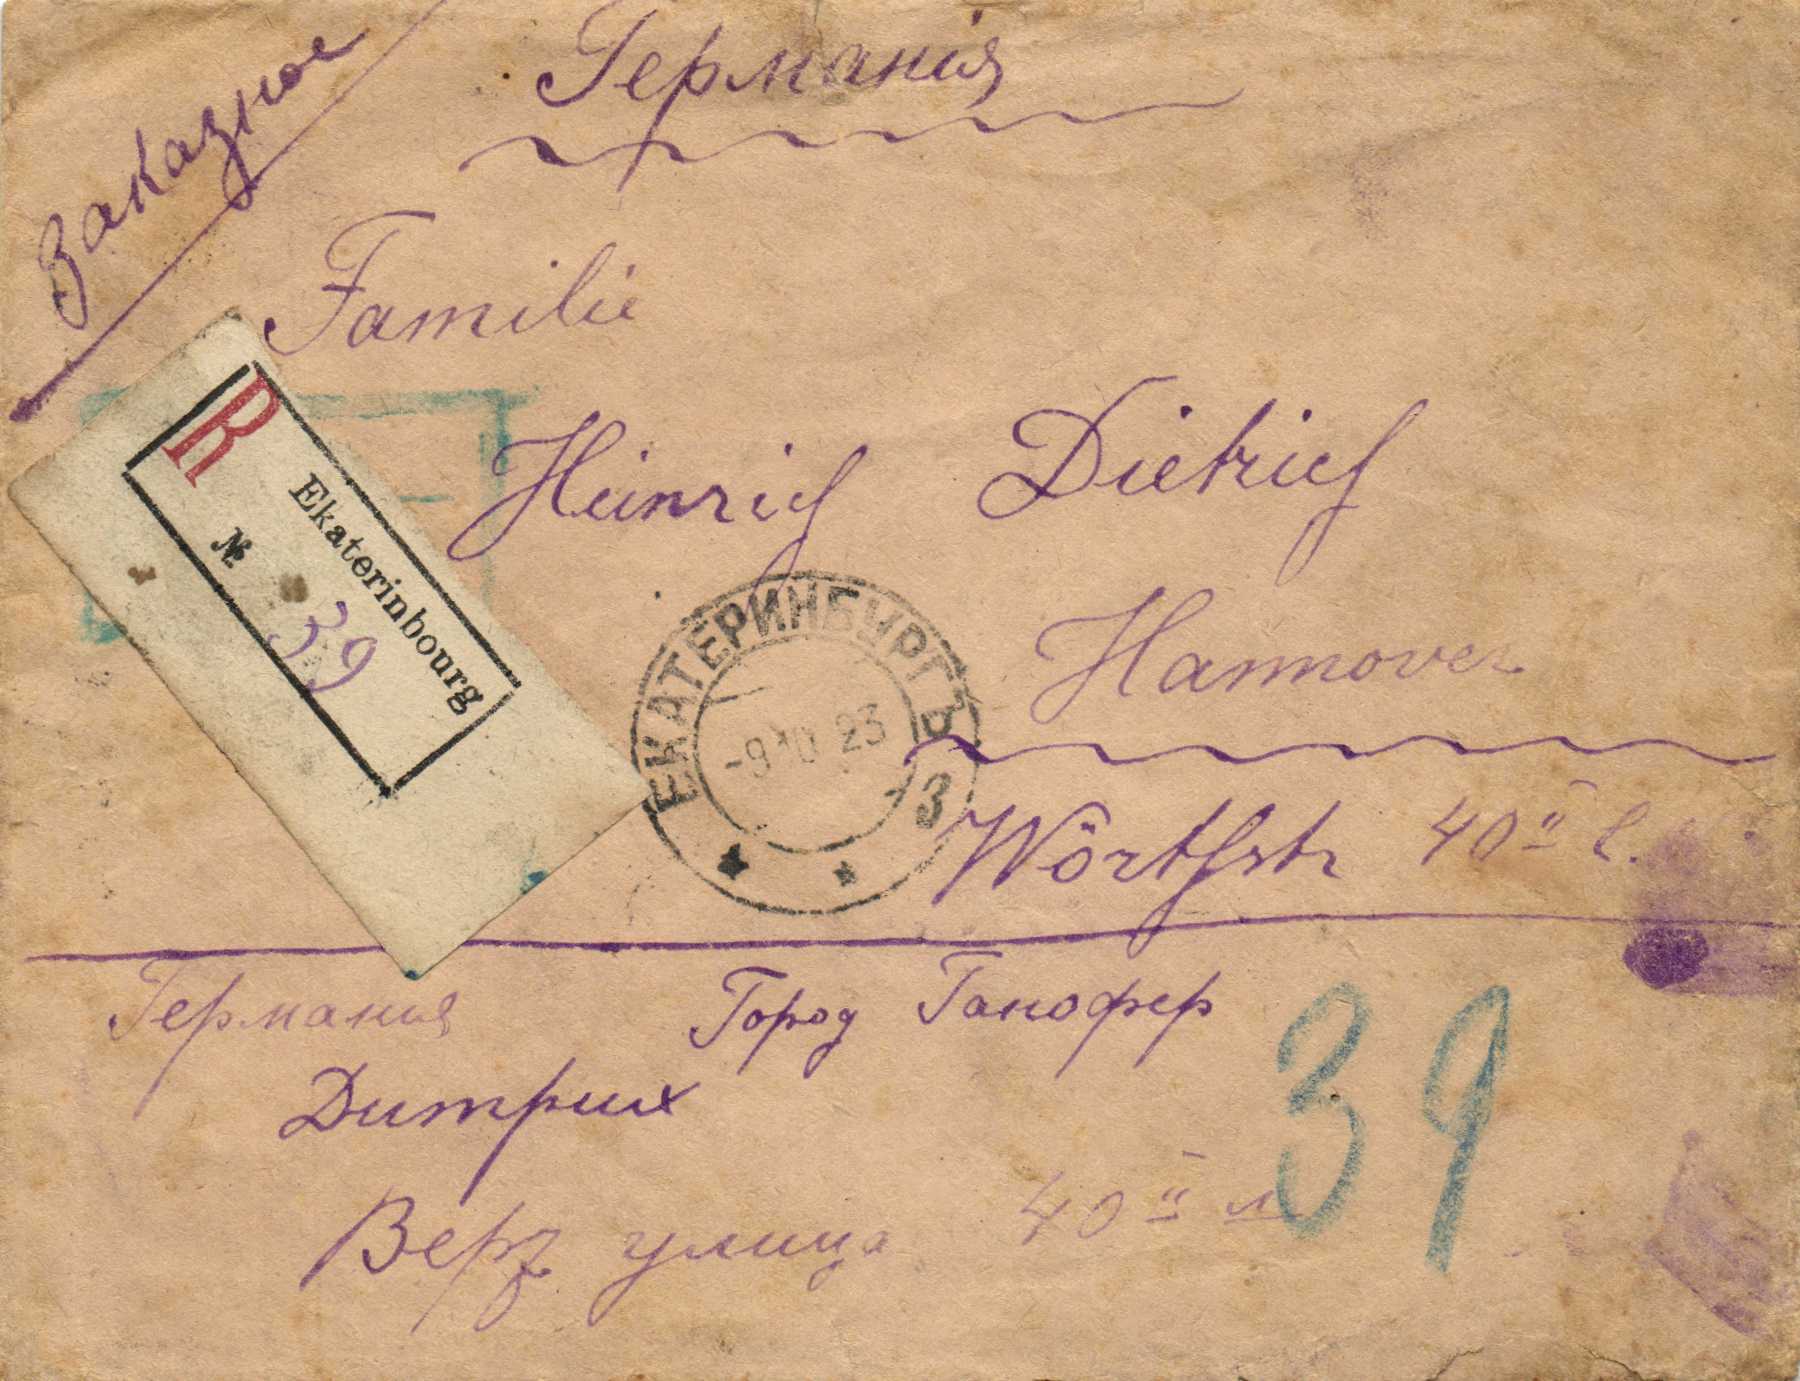 Заказное
Германія
Familie
Heinrich Dietrich
R Ekaterinbourg
№ 39
ЕКАТЕРИНБУРГЪ
-9 10 23
3
Hannover
Wörthstr 40 II l.
Германия Город Ганофер
Дитрих
39
улица 40 II л